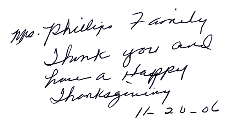 Mrs. Phillips Family
Thank you and
have a Happy
Thanksgiving
11-20-06